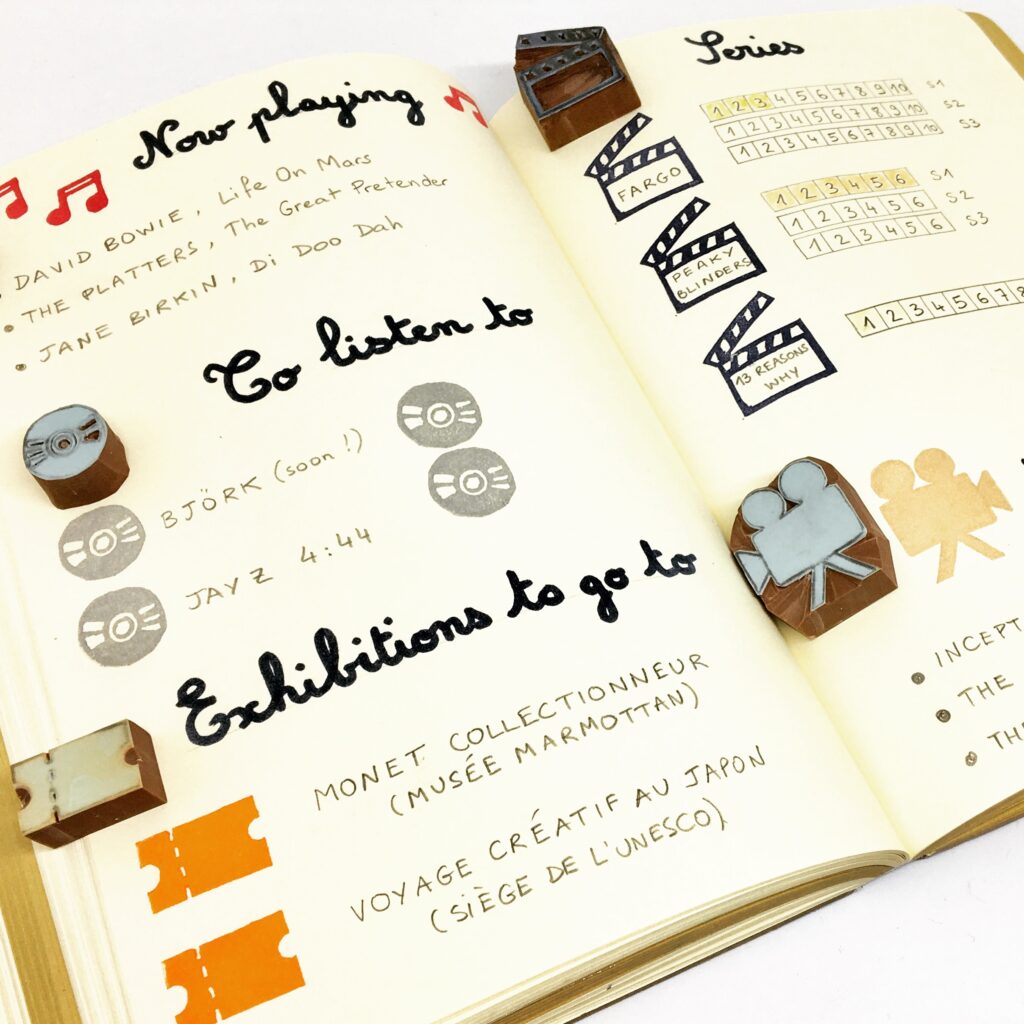 Now playing
DAVID BOWIE, Life On Mars
THE PLATTERS, The Great Pretender
JANE BIRKIN, Di Doo Dah
To listen to
BJÖRK (soon!)
JAY Z 4:44
Exhibitions to go to
MONET COLLECTIONNEUR
(MUSÉE MARMOTTAN)
VOYAGE CRÉATIF AU JAPON
(SIÈGE DE L'UNESCO)
Series
FARGO
1 2 3 4 5 6 7 8 9 10 S1
1 2 3 4 5 6 7 8 9 10 S2
1 2 3 4 5 6 7 8 9 10 S3
PEAKY
BLINDERS
1 2 3 4 5 6 S1
1 2 3 4 5 6 S2
1 2 3 4 5 6 S3
13 REASONS
WHY
1 2 3 4 5 6 7 8
INCEPT
THE
TH